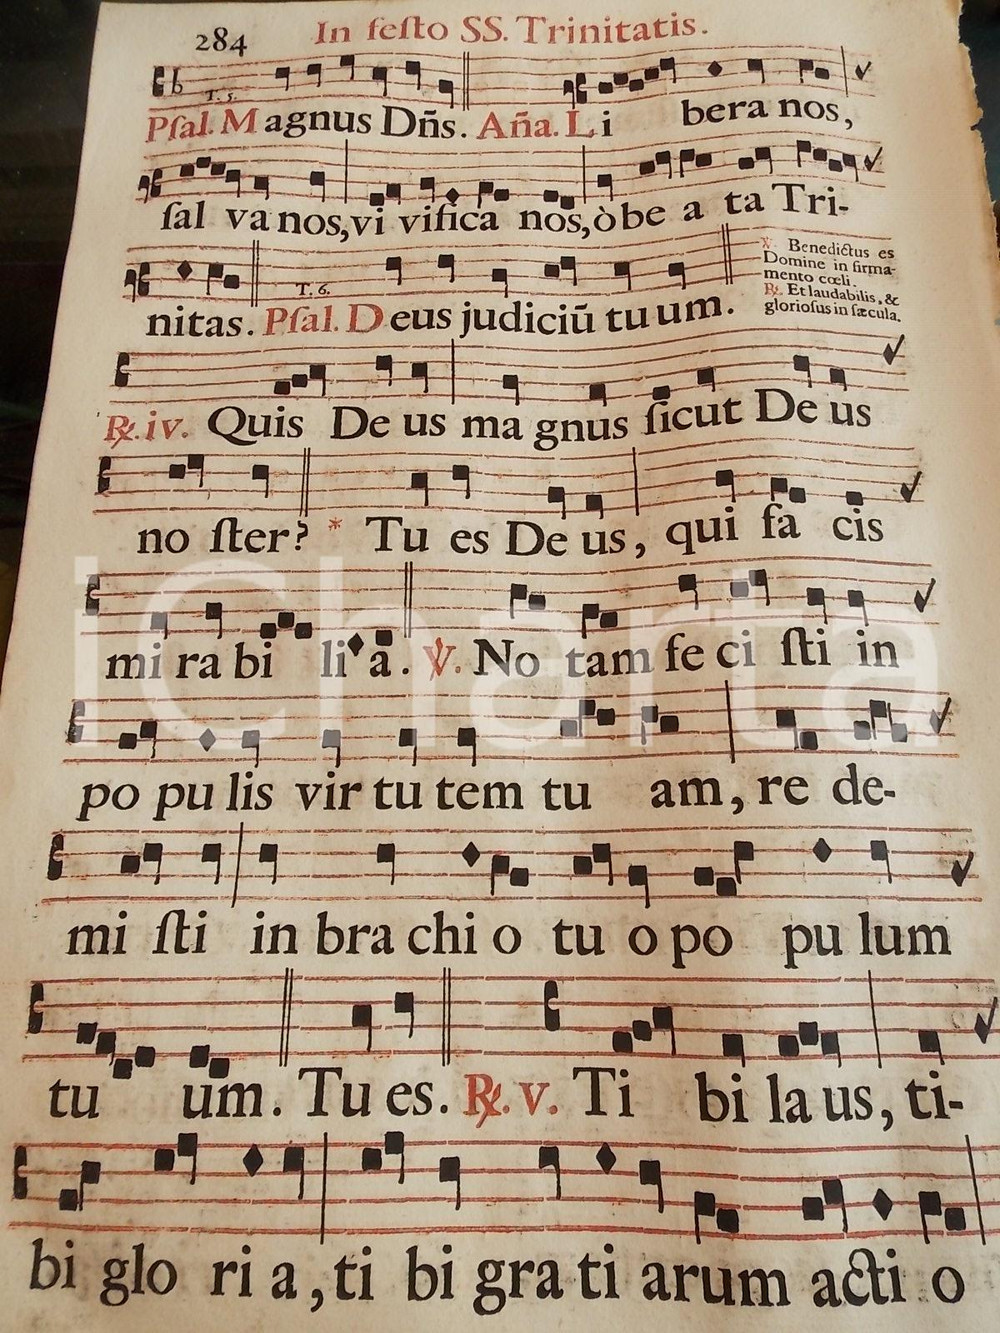 284 In feſto SS. Trinitatis.
T. 5.
Pſal. Magnus Dñs. Aña. Li bera nos,
ſal va nos, vi vifica nos, ò be a ta Tri-
T. 6.
nitas. Pſal. Deus judiciũ tuum.
℣. Benedictus es
Domine in firma-
mento cœli.
℟. Et laudabilis, &
glorioſus in ſæcula.
℟. iv. Quis De us ma gnus ſicut De us
no ſter? * Tu es De us, qui fa cis
mi ra bi li a. ℣. No tam fe ci ſti in
po pu lis vir tu tem tu am, re de-
mi ſti in bra chi o tu o po pu lum
tu um. Tu es. ℟. v. Ti bi la us, ti-
bi glo ri a, ti bi gra ti arum acti o
iCharta